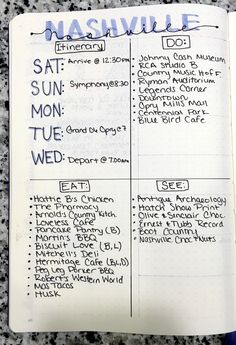 NASHVILLE
nashville
Itinerary
SAT: Arrive @ 12:30pm
SUN: Symphony @ 8:30
MON:
TUE: Grand Ole Opry @ 7
WED: Depart @ 7:00am
DO:
Johnny Cash Museum
RCA Studio B
Country Music H of F
Ryman Auditorium
Legends Corner
Downtown
Opry Mills Mall
Centennial Park
Blue Bird Cafe
EAT:
Hattie B's Chicken
The Pharmacy
Arnold's Country Kitch.
Loveless Cafe
Pancake Pantry (B)
Martin's BBQ
Biscuit Love (B,L)
Mitchell's Deli
Hermitage Cafe (B,D)
Peg Leg Porker BBQ
Robert's Western World
Mas Tacos
Husk
SEE:
Antique Archaeology
Hatch Show Print
Olive & Sinclair Choc.
Ernest Tubb Record
Boot Country
Nashville